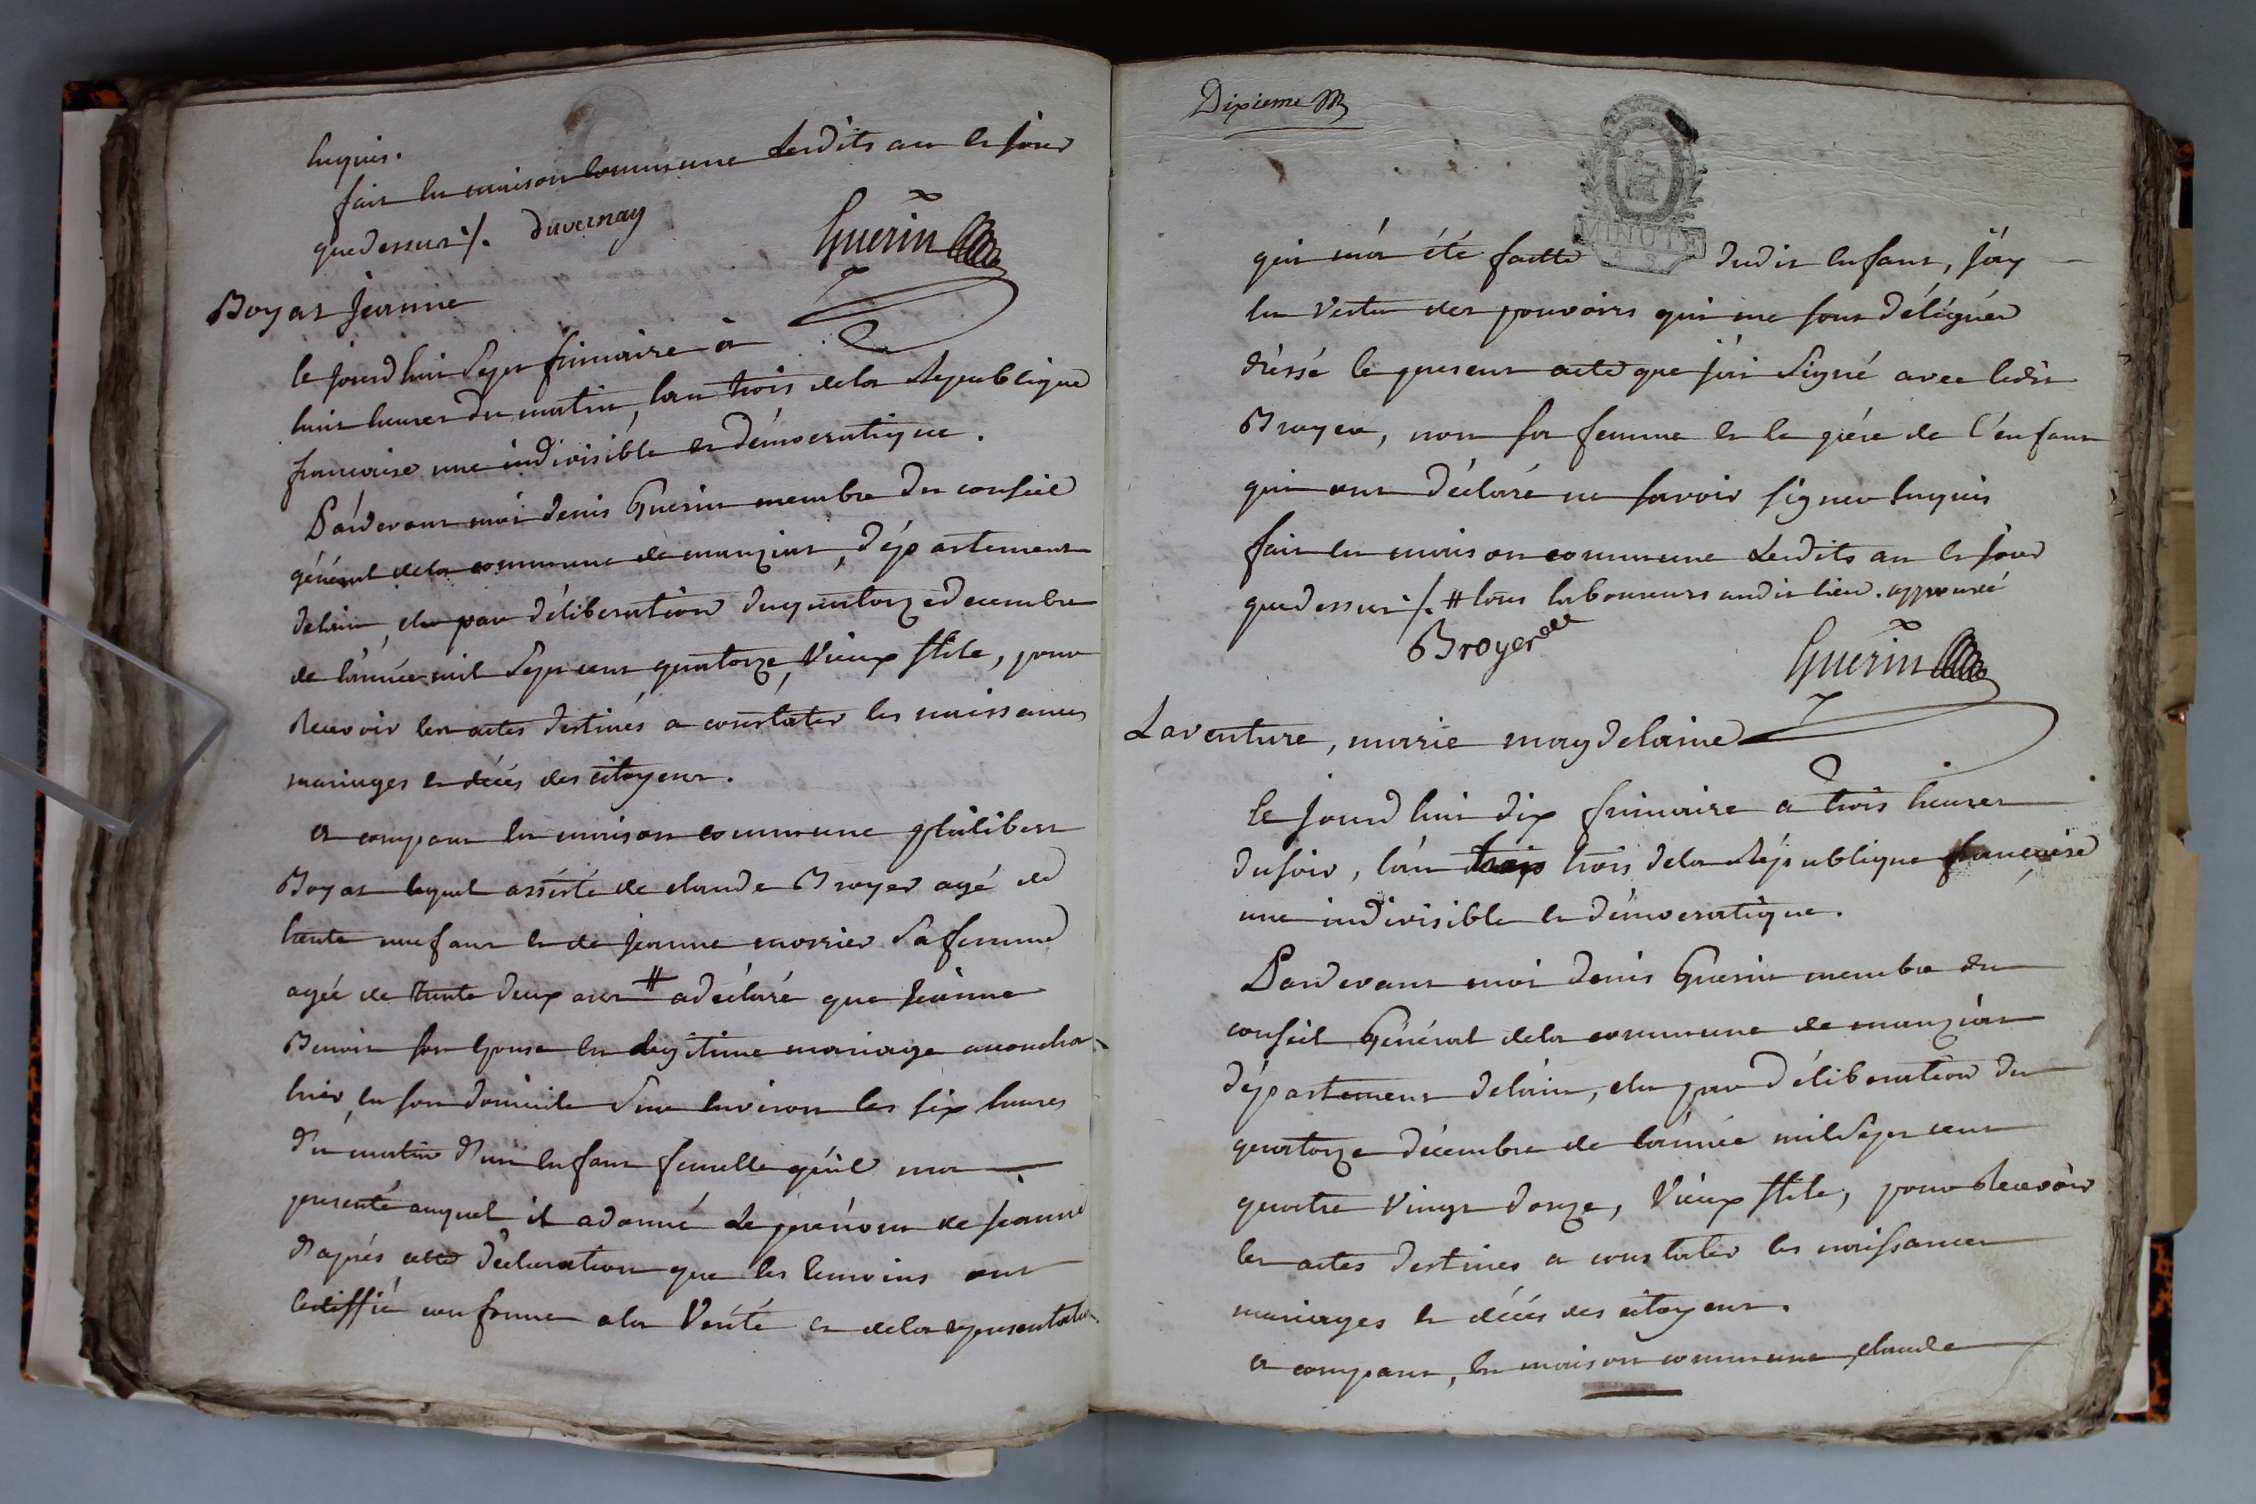 Enquis.
fait en maison commune Lesdits an et jour
que dessus ⁒. duvernay
Guerin
Boyat Jeanne
le jourd'hui Sept frimaire à
huit heures du matin, l'an trois de la République
francaise une indivisible et démocratique.
Pardevant moi denis Guerin membre du conseil
général de la commune de manziat, département
de lain, élu par déliberation du quatorze décembre
de l'année mil Sept cent quatorze, Vieux stile, pour
Recevoir les actes destinés a constater les naissances
mariages et décés des citoyens.
a comparu en maison commune philibert
Boyat lequel assisté de claude Broyer agé de
trente neuf ans et de Jeanne morier Sa femme
agée de trente deux ans # a déclaré que Jeanne
Benoit son Epouse en légitime mariage accoucha
hier, en son domicile Sur environ les six heures
du matin d'un enfant femelle qu'il ma
presenté auquel il a donné Le prénom de jeanne
d'après cette déclaration que les temoins ont
certiffié conforme a la Vérité et de la representation
Dixieme
MINUTE
qui m'a été faitte dudit enfant, j'ay
en vertu des pouvoirs qui me sont délégués
dréssé le present acte que j'ai Signé avec ledit
Broyer, non sa femme et le père de l'enfant
qui ont déclaré ne savoir signer Enquis
fait en maison commune Lesdits an et jour
que dessus ⁒. # tous laboureurs audit lieu. approuvé
Broyer
Guerin
Laventure, marie magdelaine
le Jourd'hui dix frimaire a trois heures
du soir, l'an trois trois de la République française
une indivisible et démocratique.
Pardevant moi denis Guerin membre du
conseil Général de la commune de manziat
département de lain, élu par déliberation du
quatorze décembre de l'année mil Sept cent
quatre vingt douze, Vieux stile, pour Recevoir
les actes destinés a constater les naissances
mariages et décés des citoyens.
a comparu, en maison commune, claude